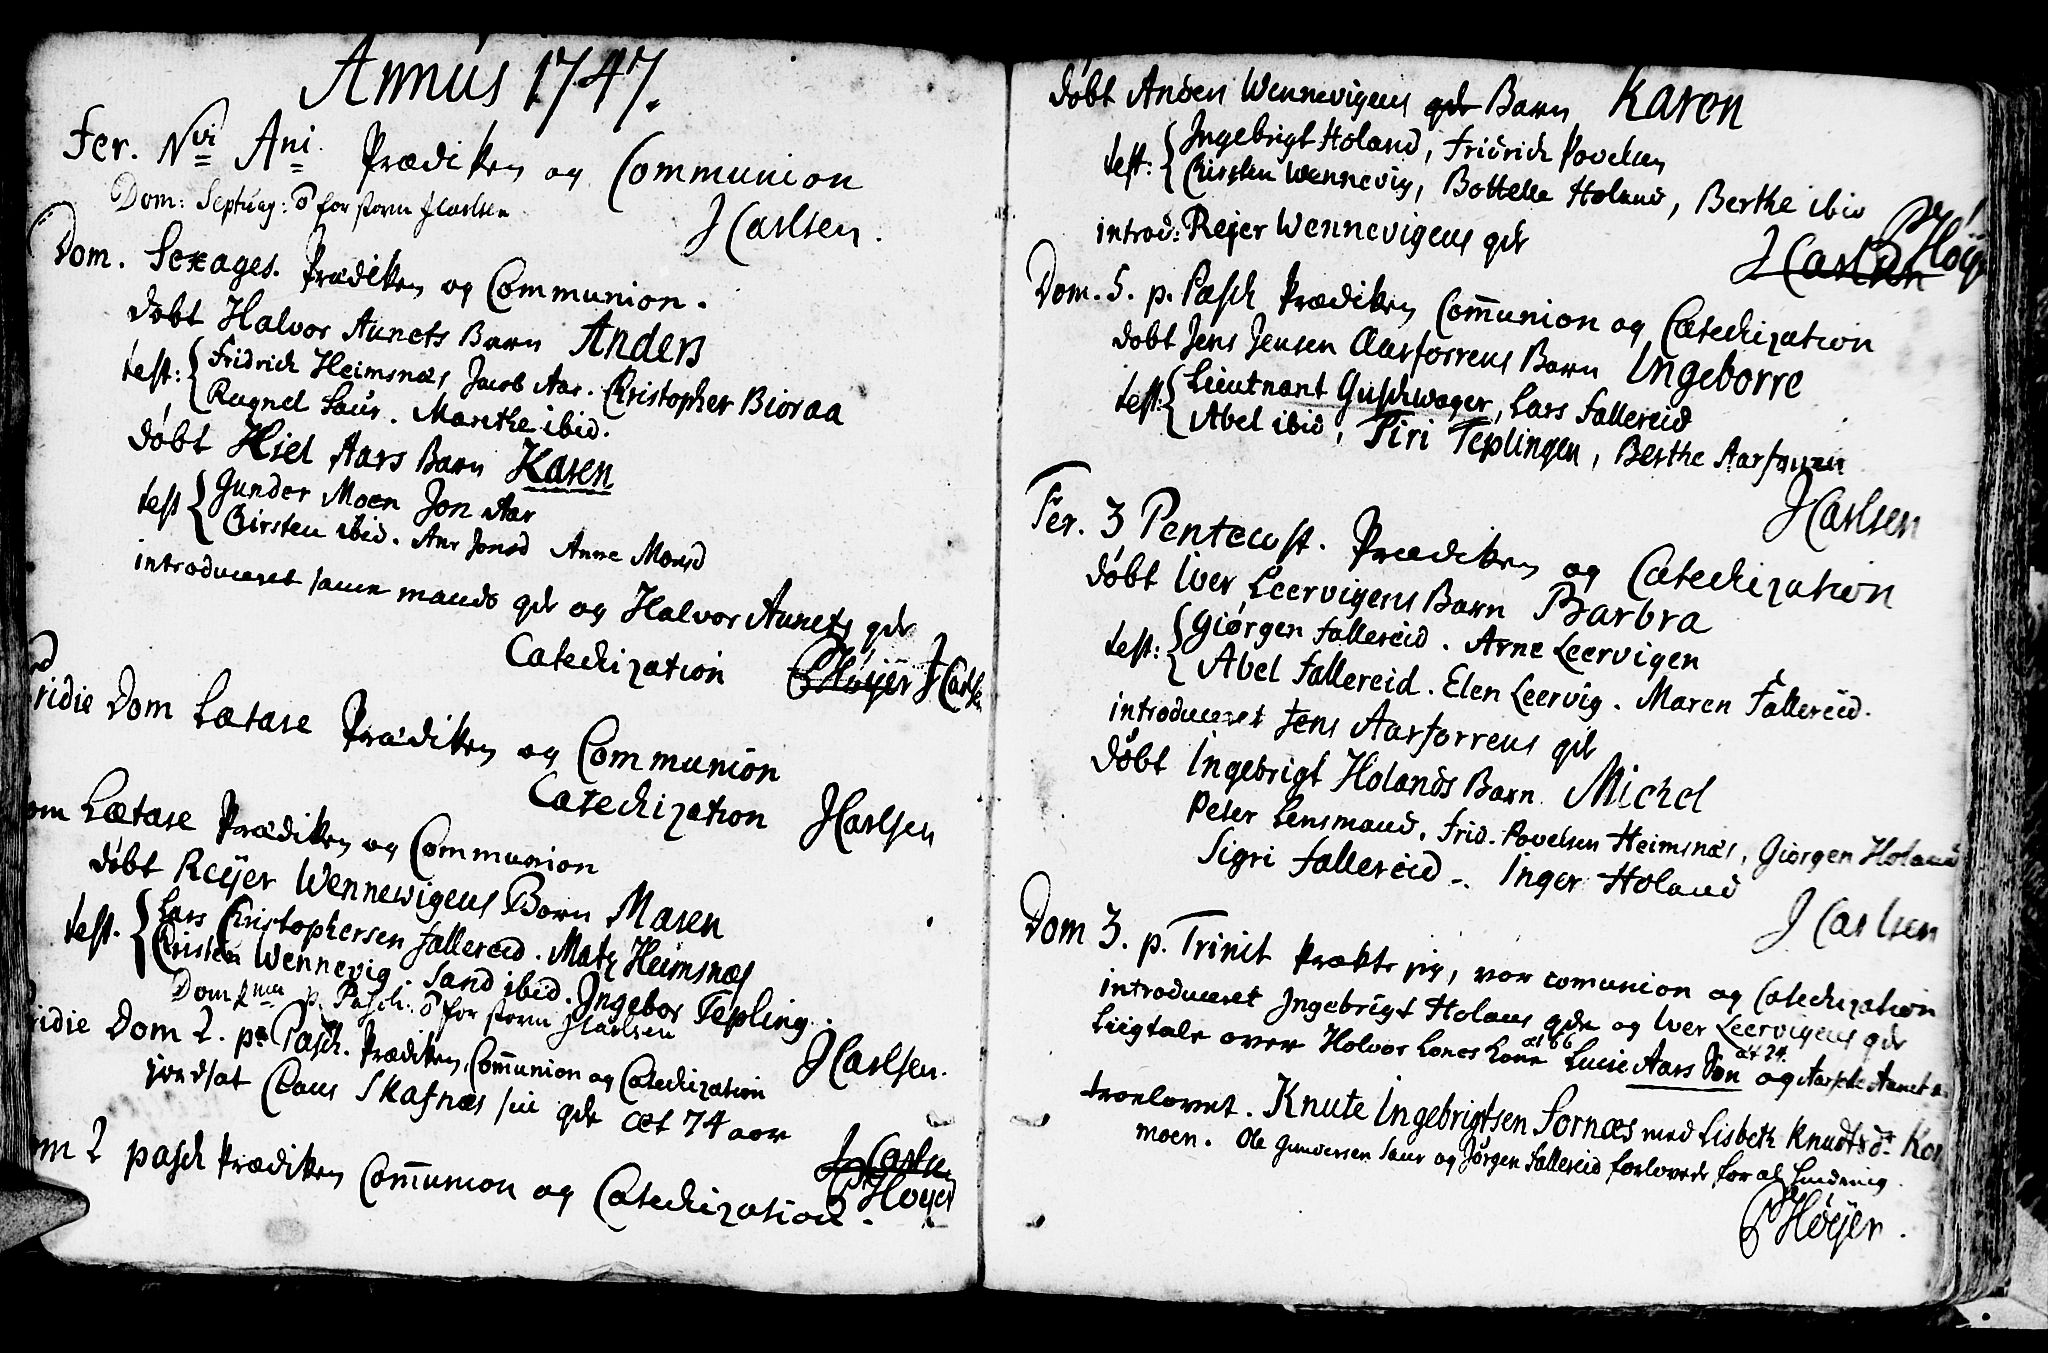 Annús 1747.
Fer. Nvi Ani. Prædiken og Communion
Dom: Septuag: ō for storm JCarlsen
JCarlsen.
Dom. Sexages. Prædiken og Communion.
døbt Halvor Aunets Barn Anders
test: Fridrich Heimsnæs Jacob Aar. Christopher Bioraa
Ragnel Saur. Marithe ibid.
døbt Hiel Aars Barn Karen
test Gunder Moen Jon Aar
Kirsten ibid. Ane Jonsd Anne Monsd
introduceret samme mands qde og Halvor Aunets qde
Catechization PHøÿer JCarls
ridie Dom Lætare Prædiken og Communion
Catechization JCarlsen
om Lætare Prædiken og Communion
døbt Reÿer Wennevigens Barn Maren
test. Lars Christophersen Fallereid. Matz Heimsnæs
Kirsten Wennevig. Sand ibid. Ingebor Tepling.
Dom 1ma p. Pasch: ō for storm JCarlsen
JCarlsen.
ridie Dom 2. p. Pasch. Prædiken, Com̄union og Catechization
jordsat Claus Skafnæs sin qde æt 74 aar
JCarlsen
PHøyer
om 2 pasch Prædiken Com̄union og Catechization.
døbt Anders Wennevigens qde Barn Karen
test: Ingebrigt Holand, Fridrich Povelsen
Kirsten Wennevig, Bottelle Holand, Berthe ibid
introd: Rejer Wennevigens qde
JCarlsen PHøÿe
Dom. 5. p. Pasch Prædiken Com̄union og Catechization
døbt Jens Jensen Aarforrens Barn Ingeborre
test: Lieutnant Guschwager, Lars Fallereid
Abel ibid, Piri Teplingen, Berthe Aarforren
JCarlsen
Fer. 3 Pentecost. Prædiken og Catechization
døbt Iver Leervigens Barn Barbra
test: Giørgen Fallereid. Arne Leervigen
Abel Fallereid. Elen Leervig. Maren Fallereid.
introduceret Jens Aarforrens qde
døbt Ingebrigt Holands Barn Michel
Peter Lensmand, Frid. Povelsen Heimsnæs, Giørgen Holand
Sigri Fallereid. Inger Holand
JCarlsen
Dom 3. p. Trinit Prækte jeg, var comunion og Catechization
introduceret Ingebrigt Holans qde og Iver Leervigens qde
Liigtale over Holvor Lones Kone æt 66 Lucie Aars Søn æt 24. og Aunet
troelovet. Knute Ingebrigtsen Sornæs med Lisbeth Knudtsdr
moen. Ole Gundersen Saur og Jørgen Fallereid forlovere for al hindring
PHøÿer.